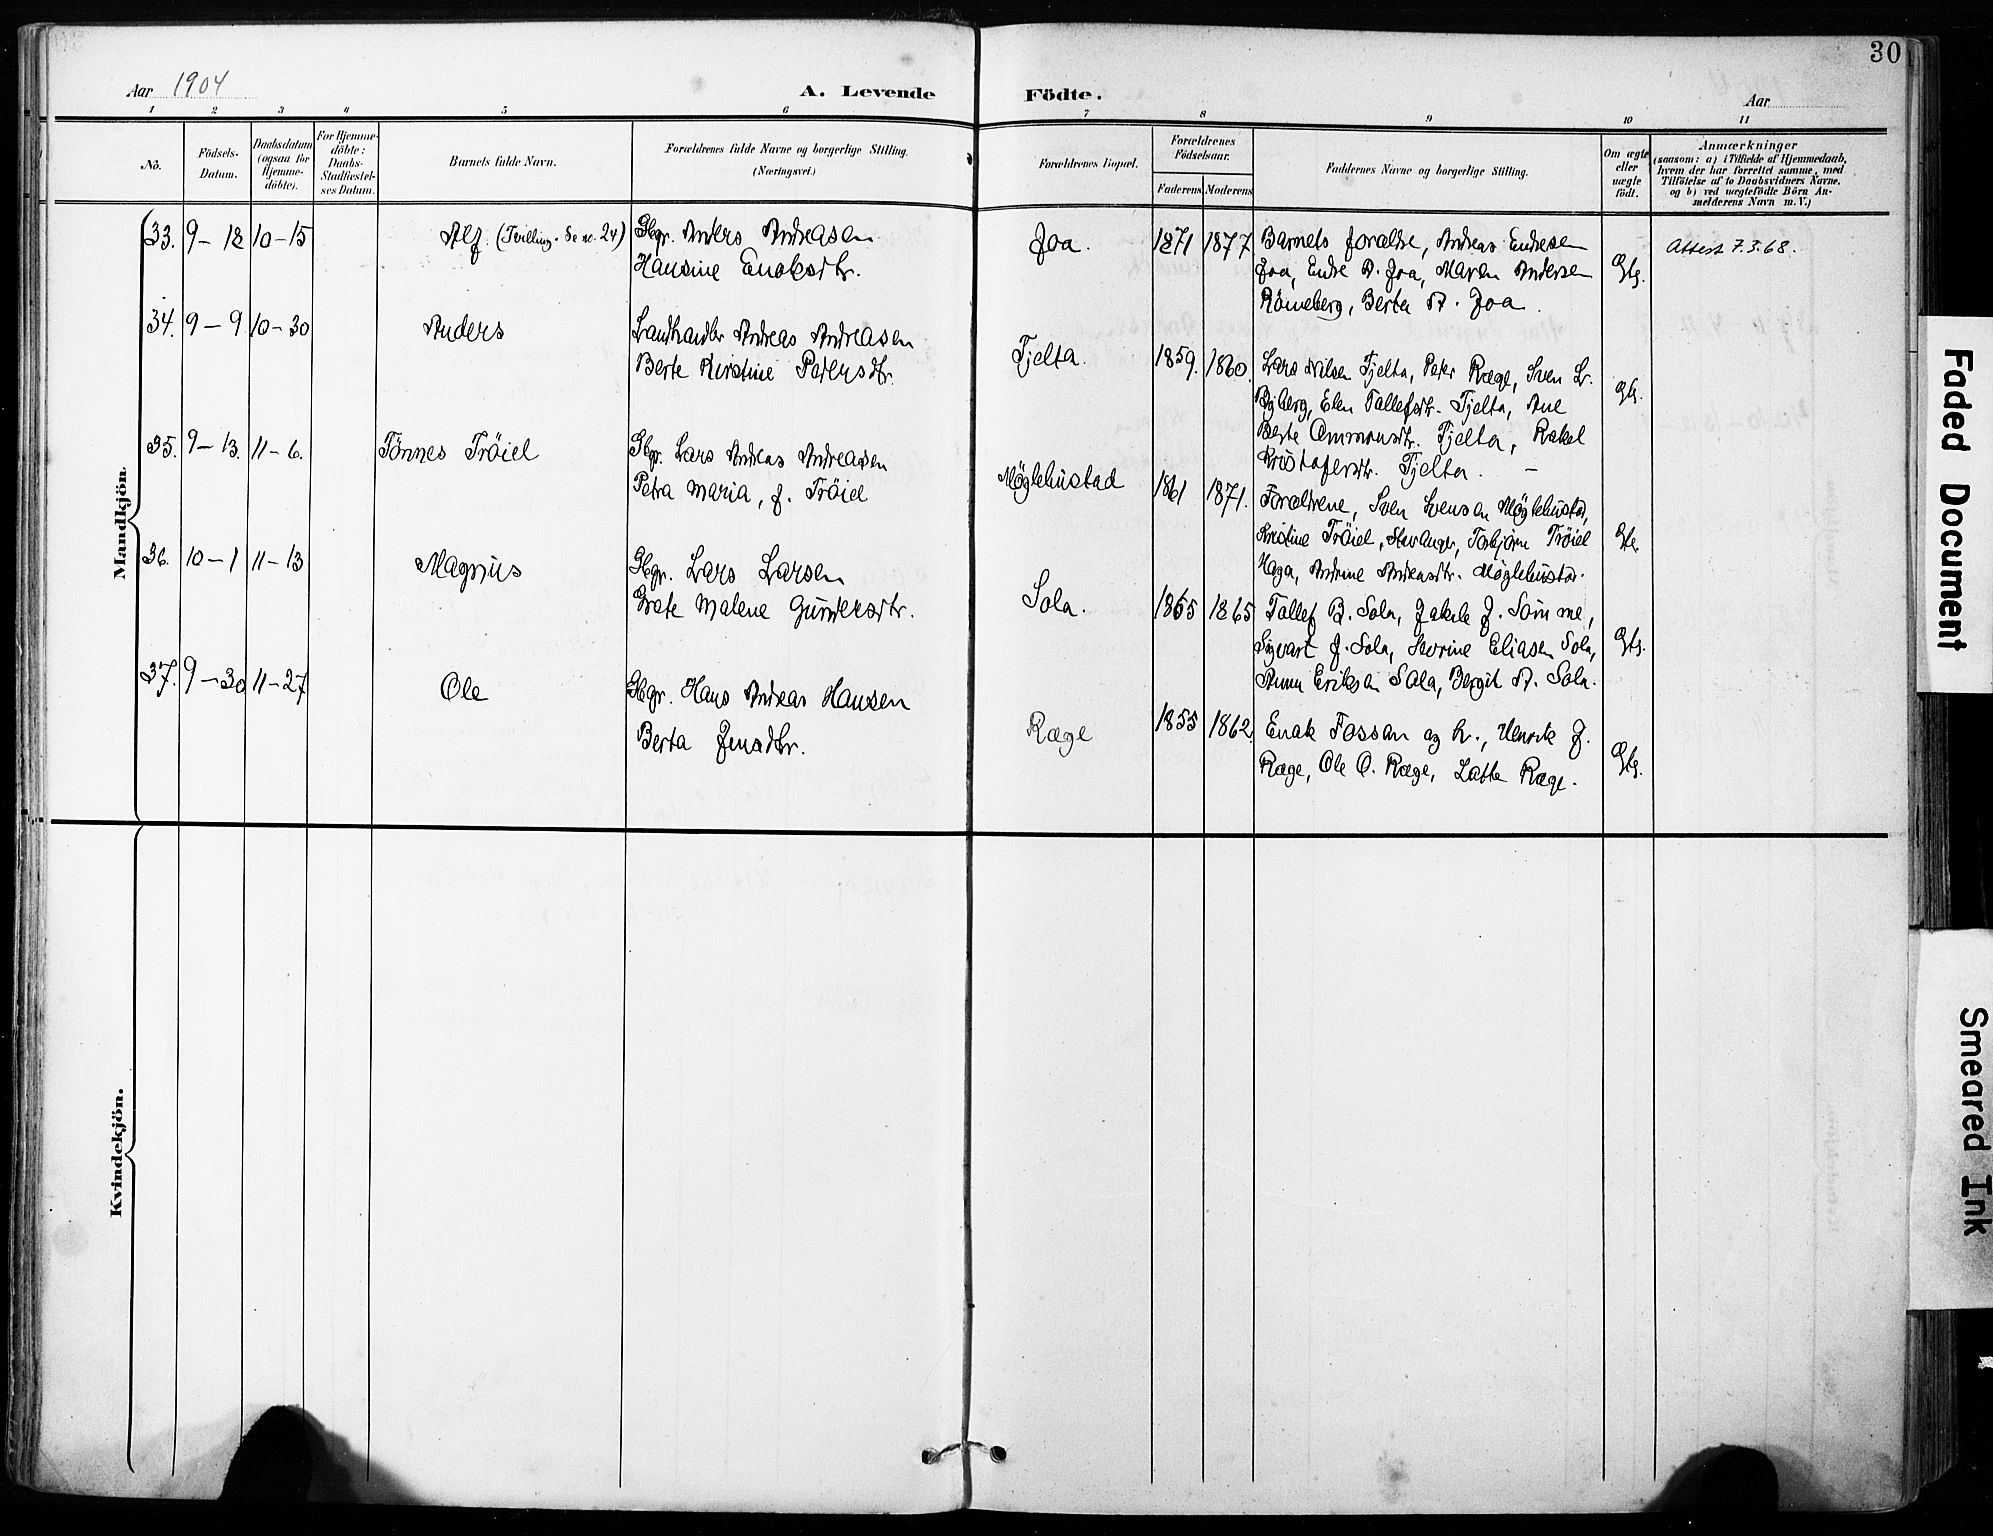 30
Aar 1904
A. Levende Födte.
Aar
1 2 3 4 5 6 7 8 9 10 11
No.
Födsels-Datum.
Daabsdatum (ogsaa for Hjemmedöbte).
For Hjemmedöbte: Daabs-Stadfæstelses Datum.
Barnets fulde Navn.
Forældrenes fulde Navne og borgerlige Stilling.
(Næringsvei.)
Forældrenes Bopæl.
Forældrenes Födselsaar.
Faderens Moderens
Faddernes Navne og borgerlige Stilling.
Om ægte eller uægte födt.
Anmærkninger
(saasom: a) i Tilfælde af Hjemmedaab,
hvem der har forrettet samme, med
Tilföielse af to Daabsvidners Navne,
og b) ved uægtefödte Börn An-
melderens Navn m. V.)
Mandkjön.
33. 9-12 10-15 Alf (Tvilling. Se no. 24) Gbgr. Anders Andreasen Joa. 1871 1877 Barnets forældre, Andreas Endresen Attest 7.3.68.
Hansine Enoksdtr. Joa, Endre A. Joa, Maren Andersen Gte.
Röneberg, Berta A. Joa.
34. 9-9 10-30 Anders Landhandler Andreas Andreasen
Berte Kirstine Petersdtr. Tjelta. 1859. 1860. Lars Nilsen Tjelta, Peter Ræge, Sven L.
Byberg, Elen Tallefsdtr. Tjelta, Ane Gte.
Berte Ommundsdtr. Tjelta, Rakel
Kristofersdtr. Tjelta. –
35. 9-13. 11-6. Tönnes Tröiel Gbgr. Lars Andreas Andreasen
Petra Maria, f. Tröiel Möglehustad 1861 1871. Forældrene, Sven Svensen Möglehustad,
Kristine Tröiel, Stavanger, Torbjörn Tröiel Gte.
Haga, Andrine Andreasdtr. Möglehustad.
36. 10-1 11-13 Magnus Gbgr. Lars Larsen
Grete Malene Gundersdtr. Sola. 1865 1865 Tallef B. Sola, Jakob J. Sömme,
Sigvart J. Sola, Severine Eliasen Sola, Gte.
Anna Eriksen Sola, Bergit A. Sola.
37. 9-30 11-27 Ole Gbgr. Hans Andreas Hansen
Berta Jensdtr. Ræge 1855 1862. Enok Fossan og h., Henrik J.
Ræge, Ole O. Ræge, Latte Ræge. Gte.
Kvindekjön.
Faded Document
Smeared Ink